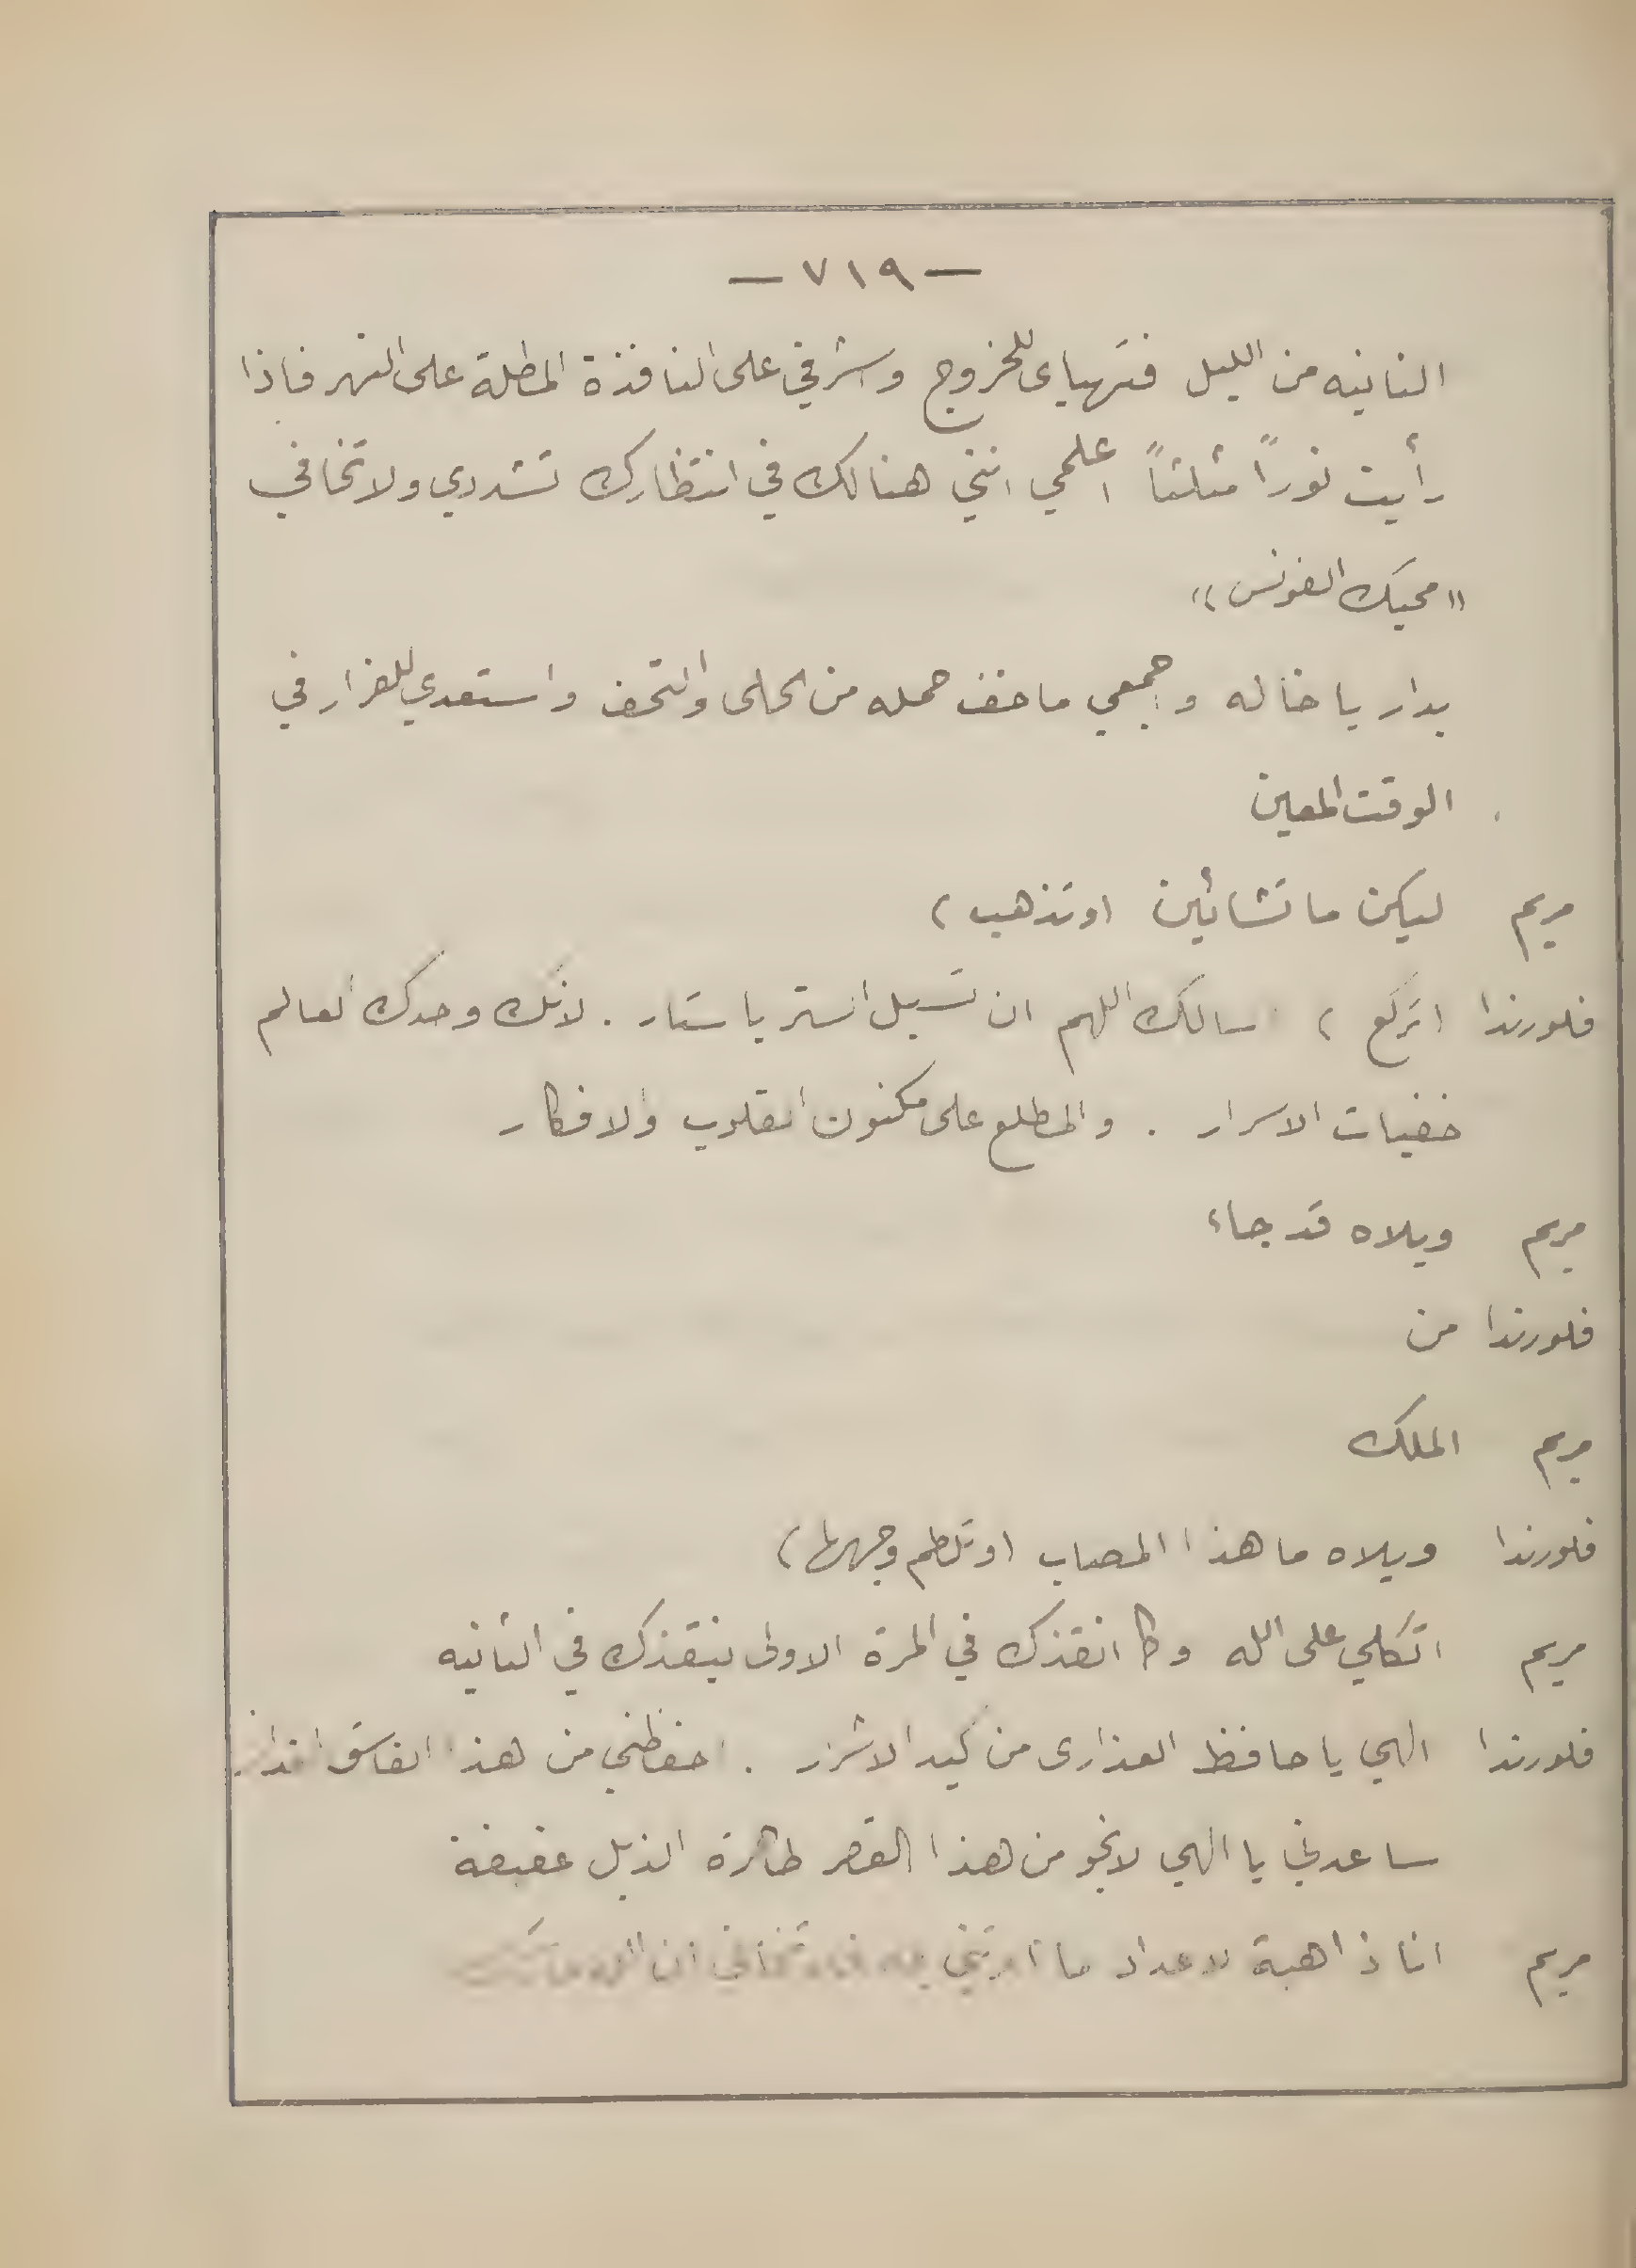 — ٧١٩ —
الثانيه من الليل فتهياى للخروج واشرفي على النافذة المطلة على النهر فاذا
رأيت نوراً مثلثاً اعلمي انني هنالك في انتظارك تشددي ولا تخافي
«محبك الفونس»
بدار يا خاله واجمعي ما خف حمله من الحلى والتحف واستعدي للفرار في
الوقت المعين
مريم ليكن ما تشائين (وتذهب)
فلورندا (تركع) اسالك اللهم ان تسبل الستر يا ستار . لانك وحدك العالم
خفيات الاسرار . والمطلع على مكنون القلوب والافكار
مريم ويلاه قد جاء
فلورندا من
مريم الملك
فلورندا ويلاه ما هذا المصاب (وتلطم وجهها)
مريم اتكلي على الله وكما انقذك في المرة الاولى ينقذك في الثانيه
فلورندا الهي يا حافظ العذارى من كيد الاشرار . احفظني من هذا الفاسق
ساعدني يا الهي لانجو من هذا القصر طاهرة الذيل عفيفة
مريم انا ذاهبة لاعداد ما امرتني به فلا تخافي ان الله